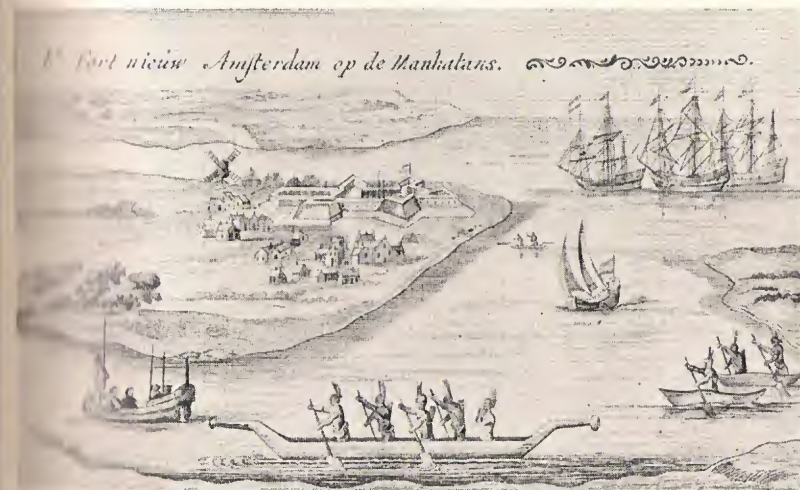 Fort nieuw Amsterdam op de Manhatans.